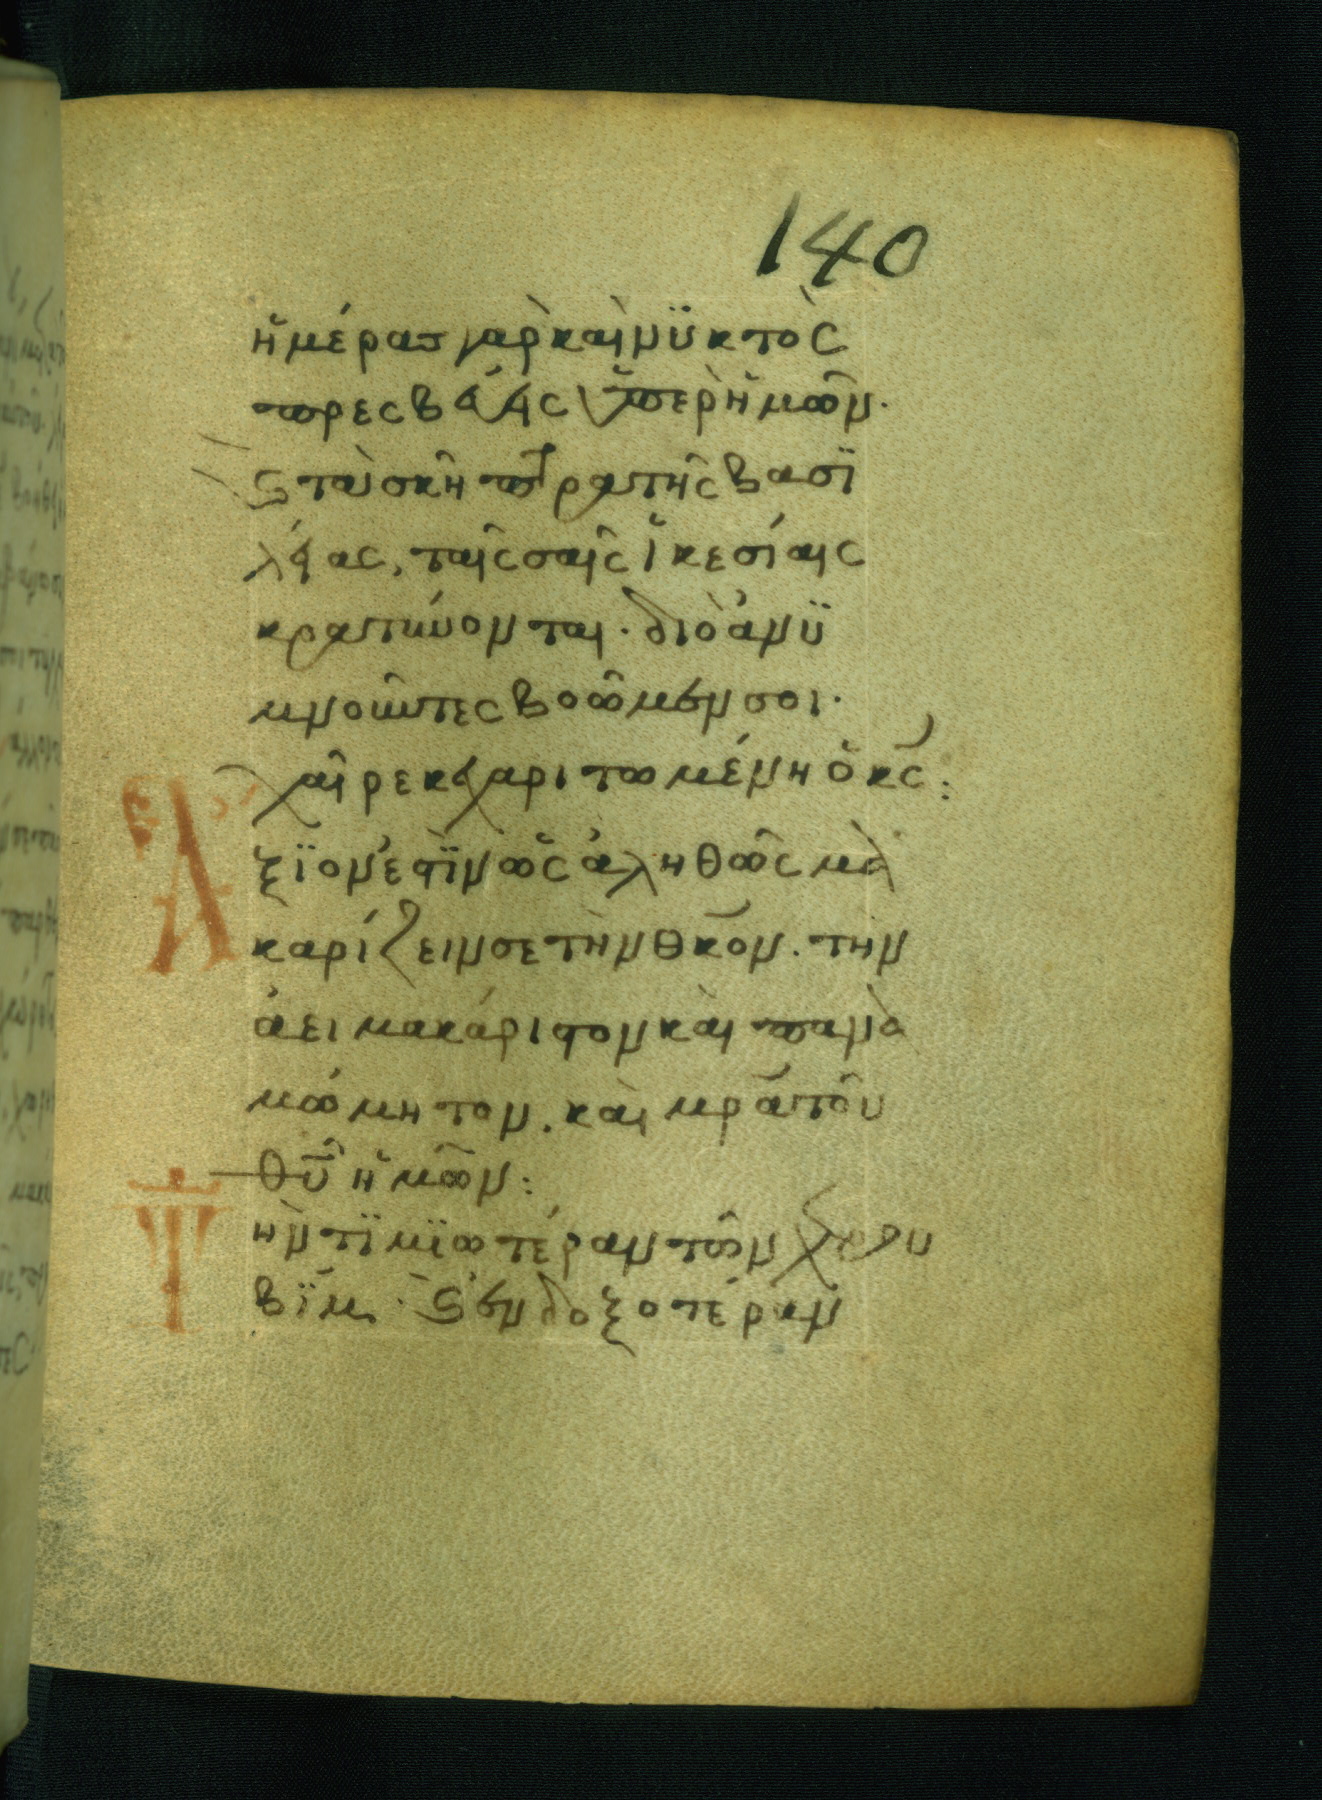 140
ἡμέρας γὰρ καὶ νϋκτὸς
πρεσβεύεις ὑπὲρ ἡμῶν.
ϛ τὰ σκῆπτρα τῆς βασϊ
λείας, ταῖς σαῖς ἱκεσίαις
κρατύνονται. διὸ ἀνϋ
μνοῦντες βοῶμεν σοι.
χαῖρε κεχαριτωμένη ὁ κς:
Ἄξϊον ἐστϊν ὡς ἀληθῶς μα
καρίζειν σε τὴν θκον. τὴν
ἀειμακάριστον καὶ πανα
μώμητον. καὶ μρα τοῦ
θυ ἡμῶν:
Τὴν τϊμϊωτέραν τῶν χερου
βϊμ. ϛ ἐνδοξοτέραν